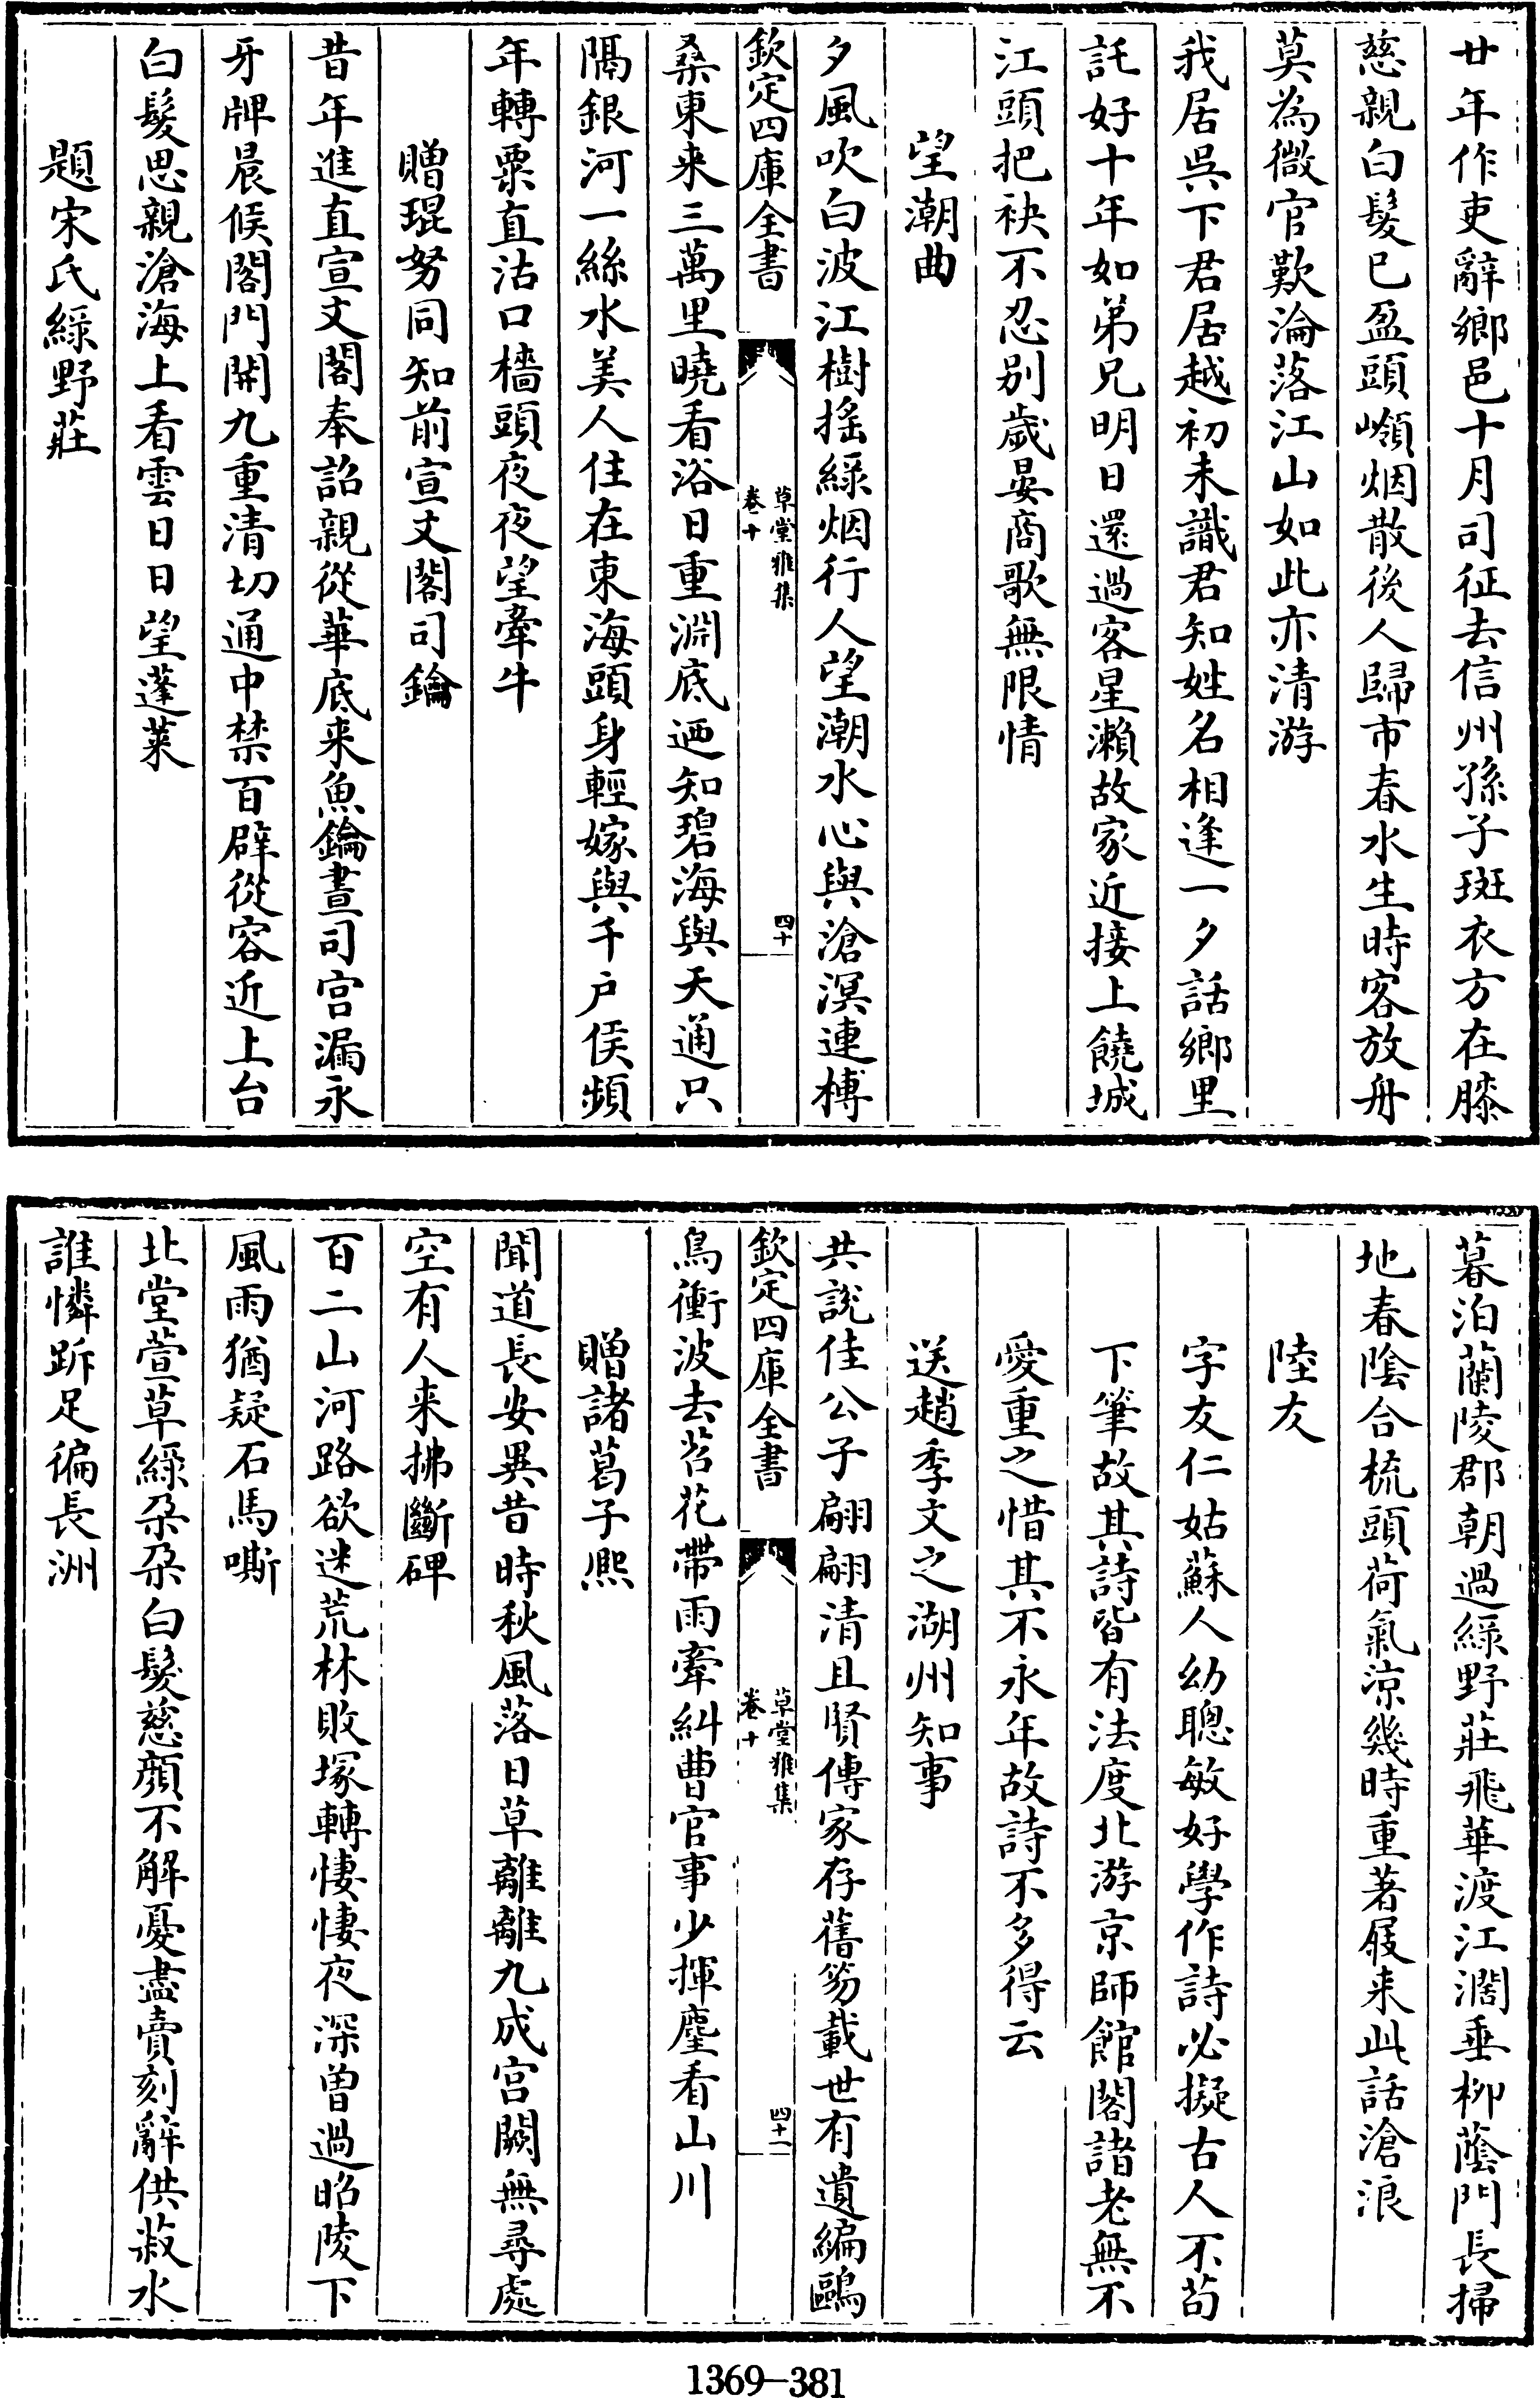 廿年作吏辭鄉邑十月司征去信州孫子斑衣方在膝
慈親白髮已盈頭嶺烟散後人歸市春水生時客放舟
莫為微官歎淪落江山如此亦清游
我居吳下君居越初未識君知姓名相逢一夕話鄉里
託好十年如弟兄明日還過客星瀨故家近接上饒城
江頭把袂不忍别歲晏商歌無限情
望潮曲
夕風吹白波江樹搖綠烟行人望潮水心與滄溟連榑
欽定四庫全書
草堂雅集
卷十
四十
桑東来三萬里曉看浴日重淵底廼知碧海與天通只
隔銀河一絲水美人住在東海頭身輕嫁與千户侯頻
年轉粟直沽口檣頭夜夜望牽牛
贈琨努同知前宣文閣司鑰
昔年進直宣文閣奉詔親從華底来魚鑰晝司宫漏永
牙牌晨候閤門開九重清切通中禁百辟從容近上台
白髮思親滄海上看雲日日望蓬莱
題宋氏綠野莊
暮泊蘭陵郡朝過綠野莊飛華渡江濶垂柳蔭門長掃
地春陰合梳頭荷氣凉幾時重著屐来此話滄浪
陸友
字友仁姑蘇人幼聰敏好學作詩必擬古人不苟
下筆故其詩皆有法度北游京師館閣諸老無不
愛重之惜其不永年故詩不多得云
送趙季文之湖州知事
共説佳公子翩翩清且賢傳家存舊笏載世有遺編鷗
欽定四庫全書
草堂雅集
卷十
四十一
鳥衝波去苕花帶雨牽糾曹官事少揮麈看山川
贈諸葛子熈
聞道長安異昔時秋風落日草離離九成宫闕無尋處
空有人来拂斷碑
百二山河路欲迷荒林敗塚轉悽悽夜深曽過昭陵下
風雨猶疑石馬嘶
北堂萱草綠朶朶白髮慈顔不解憂盡賣刻辭供菽水
誰憐跅足徧長洲
1369-381